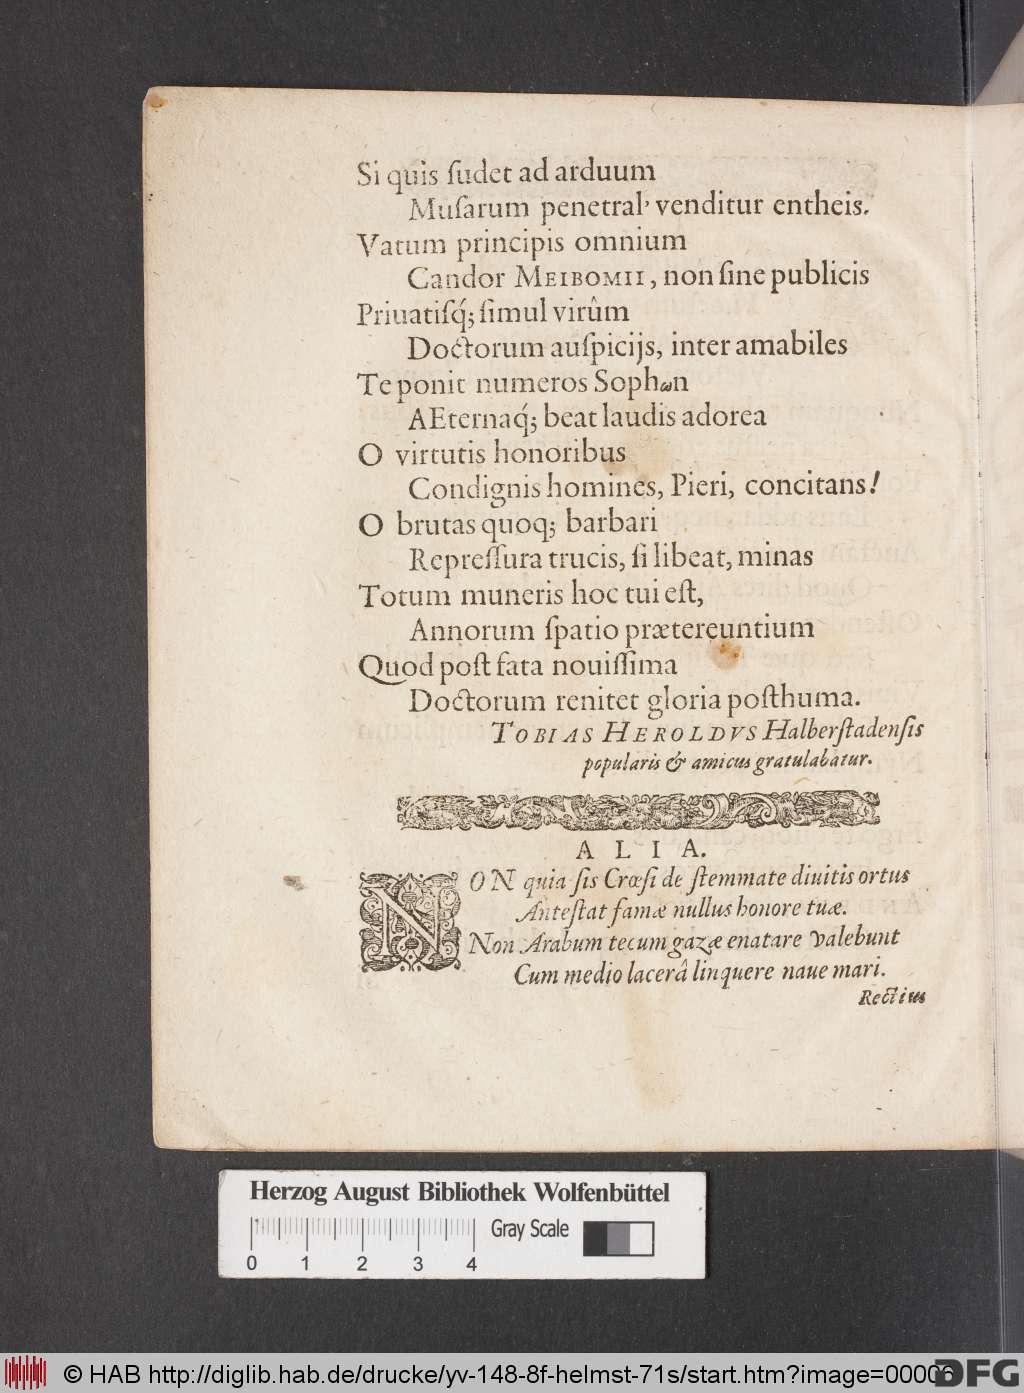 Si quis ſudet ad arduum
Muſarum penetral’ venditur entheis.
Vatum principis omnium
Candor MEIBOMII, non ſine publicis
Priuatiſq́; ſimul virûm
Doctorum auſpicijs, inter amabiles
Te ponit numeros Sophωn
AEternaq́; beat laudis adorea
O virtutis honoribus
Condignis homines, Pieri, concitans!
O brutas quoq; barbari
Repreſſura trucis, ſi libeat, minas
Totum muneris hoc tui eſt,
Annorum ſpatio prætereuntium
Quod poſt fata nouiſſima
Doctorum renitet gloria poſthuma.
TOBIAS HEROLDVS Halberſtadenſis
popularis & amicus gratulabatur.
ALIA.
NON quia ſis Crœſi de ſtemmate diuitis ortus
Anteſtat famæ nullus honore tuæ.
Non Arabum tecum gazæ enatare valebunt
Cum medio lacerâ linquere naue mari.
Rectius
Herzog August Bibliothek Wolfenbüttel
Gray Scale
0 1 2 3 4
© HAB http://diglib.hab.de/drucke/yv-148-8f-helmst-71s/start.htm?image=00006
DFG